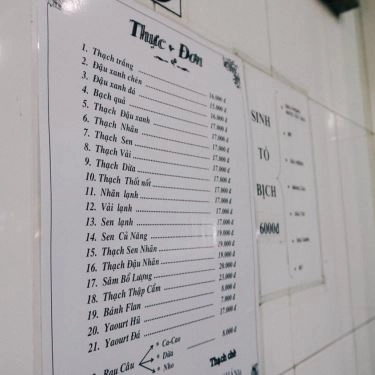 Thực + Đơn
1. Thạch trắng
2. Đậu xanh chén 16.000 đ
3. Đậu xanh đá 15.000 đ
4. Bạch quả 16.000 đ
5. Thạch Đậu xanh 17.000 đ
6. Thạch Nhãn 17.000 đ
7. Thạch Sen 17.000 đ
8. Thạch Vải 17.000 đ
9. Thạch Dừa 17.000 đ
10. Thạch Thốt nốt 17.000 đ
11. Nhãn lạnh 17.000 đ
12. Vải lạnh 17.000 đ
13. Sen lạnh 17.000 đ
14. Sen Củ Năng 17.000 đ
15. Thạch Sen Nhãn 19.000 đ
16. Thạch Đậu Nhãn 19.000 đ
17. Sâm Bổ Lượng 20.000 đ
18. Thạch Thập Cẩm 23.000 đ
19. Bánh Flan 8.000 đ
20. Yaourt Hũ 7.000 đ
21. Yaourt Đá 17.000 đ
Rau Câu
* Ca-Cao
* Dừa 8.000 đ
* Nho
Thạch chè
SINH
TỐ
BỊCH
6000đ